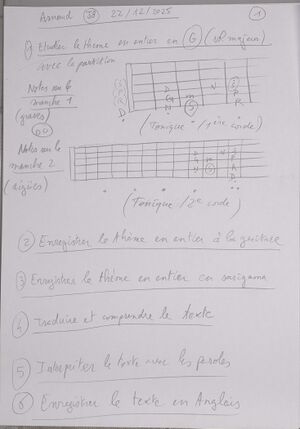 Arnaud 38 22/12/2025 1
1 Etudier le thème en entier en G (sol majeur)
avec la partition
Notes sur le
manche 1
(graves)
(Tonique / 1ère corde)
Notes sur le
manche 2
(aigües)
(Tonique / 2e corde)
2 Enregistrer le thème en entier à la guitare
3 Enregistrer le thème en entier en sarigama
4 Traduire et comprendre le texte
5 Interpréter le texte avec les paroles
6 Enregistrer le texte en Anglais